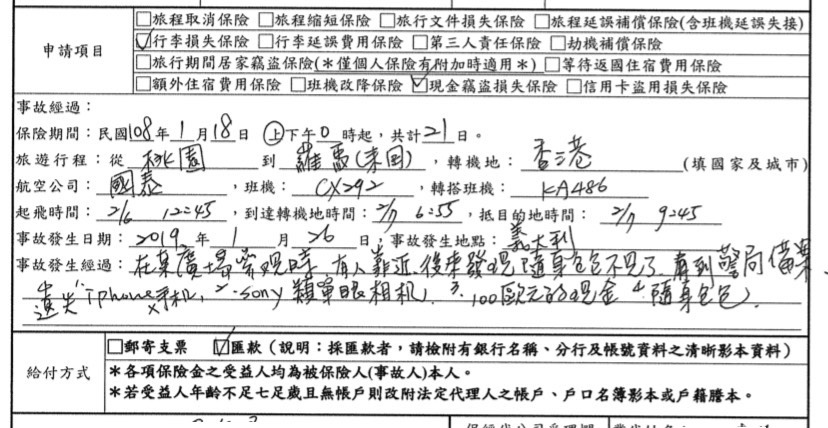 申請項目
□旅程取消保險 □旅程縮短保險 □旅行文件損失保險 □旅程延誤補償保險(含班機延誤失接)
☑行李損失保險 □行李延誤費用保險 □第三人責任保險 □劫機補償保險
□旅行期間居家竊盜保險(*僅個人保險有附加時適用*) □等待返國住宿費用保險
□額外住宿費用保險 □班機改降保險 ☑現金竊盜損失保險 □信用卡盜用損失保險
事故經過：
保險期間：民國108年1月18日 上下午0時起，共計21日。
旅遊行程：從 桃園 到 羅馬(來回)，轉機地：香港 (填國家及城市)
航空公司：國泰，班機：CX292，轉搭班機：KA486
起飛時間：2/6 12:45，到達轉機地時間：2/7 6:55，抵目的地時間：2/7 9:45
事故發生日期：2019年1月26日；事故發生地點：義大利
事故發生經過：在某廣場參觀時 有人靠近，後來發現隨身包包不見了，直到警局備案。
遺失 1. iphone手机，2. sony 類單眼相机，3. 100歐元的現金 4. 隨身包包。
給付方式
□郵寄支票 ☑匯款（說明：採匯款者，請檢附有銀行名稱、分行及帳號資料之清晰影本資料）
*各項保險金之受益人均為被保險人(事故人)本人。
*若受益人年齡不足七足歲且無帳戶則改附法定代理人之帳戶、戶口名簿影本或戶籍謄本。